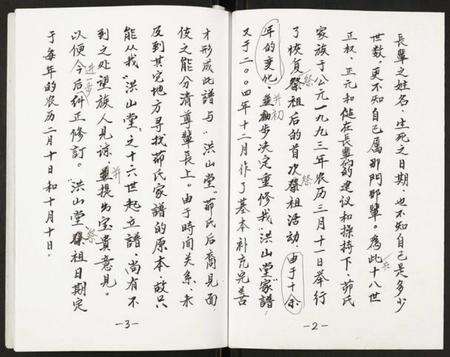 長輩之姓名，生死之日期，也不知自己是多少
世数，更不知自己属那門那輩。為此十八世
正权、正元和健在長輩们的建议和操持下，茆氏
家族于公元一九九三年农历三月十二日举行
了恢复祭祖后的首次祭祖活动，由于十余
年的变化，並初步决定重修我“洪山堂”家譜
又于二〇〇四年十二月作了基本补充完善
-2-
才形成此譜与“洪山堂”茆氏后裔見面
使之能分清尊輩長上。由于時间关系，未
及到其它地方寻找茆氏家譜的原本，故只
能从我“洪山堂”之十六世起立譜，尚有不
到之处望族人見谅，並提出宝贵意見。
以便今后纠正修订。“洪山堂”祭祖日期定
进一步
于每年的农历二月十日和十月十日。
-3-